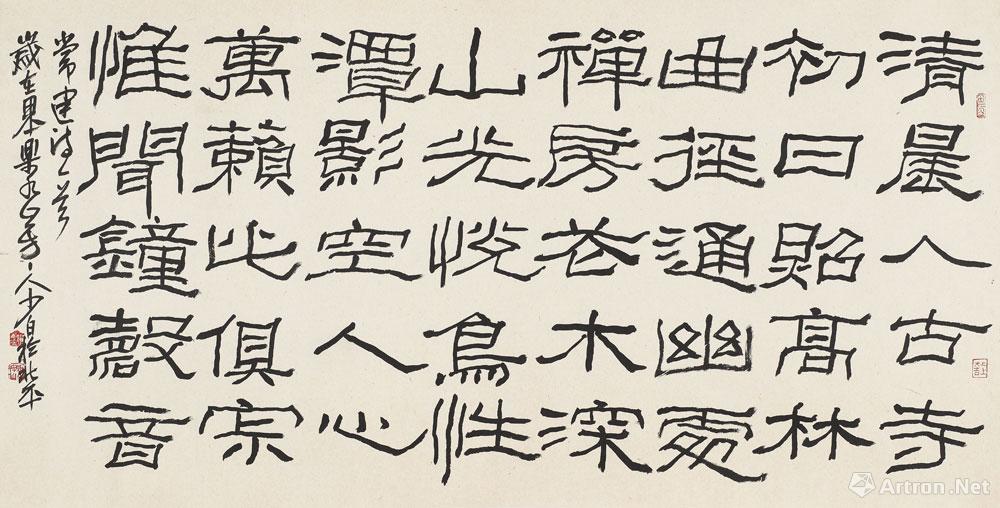 清晨入古寺
初日照高林
曲徑通幽處
禪房花木深
山光悅鳥性
潭影空人心
萬籟此俱寂
惟聞鐘磬音
常建詩一首
歲在
Artron.Net